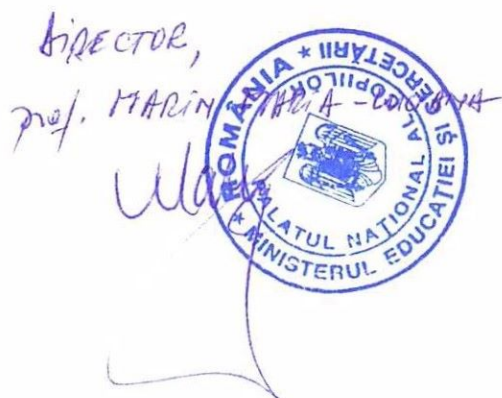 DIRECTOR,
prof. MARIN MARIA -
ROMÂNIA * MINISTERUL EDUCAȚIEI ȘI CERCETĂRII *
PALATUL NAȚIONAL AL COPIILOR